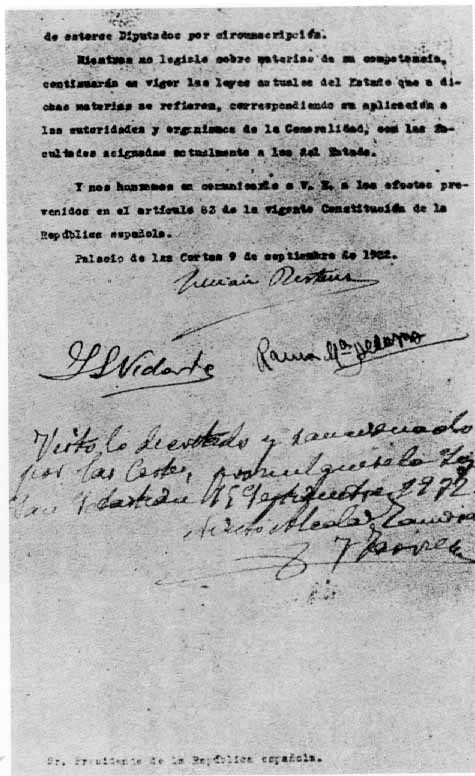 de catorce Diputados por circunscripción.
Mientras no legisle sobre materias de su competencia,
continuarán en vigor las leyes actuales del Estado que a di-
chas materias se refieren, correspondiendo su aplicación a
las autoridades y organismos de la Generalidad, con las fa-
cultades asignadas actualmente a los del Estado.
Y nos honramos en comunicarlo a V. E. a los efectos pre-
venidos en el artículo 83 de la vigente Constitución de la
República española.
Palacio de las Cortes 9 de septiembre de 1932.
Julián Besteiro
J S Vidarte
Ramón Mª de Aldasoro
Visto lo decretado y sancionado
por las Cortes, promulguese la Ley
San Sebastián 15 Septiembre 1932
Niceto Alcalá Zamora
y Torres
Sr. Presidente de la República española.